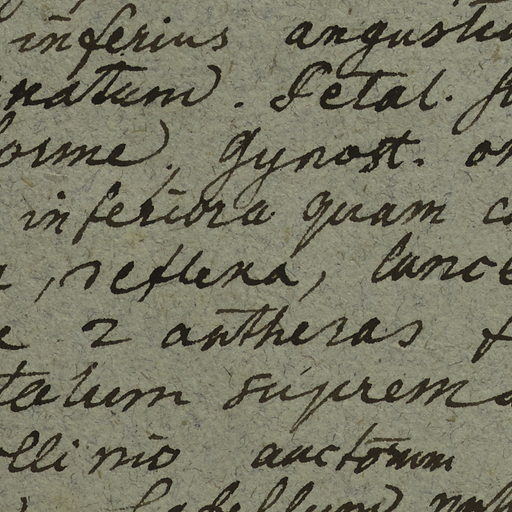 inferius angusti
natum. Petal. s
forme, Gynost.
inferiora quam c
, reflexa, lance
2 antheras
talum suprem
ollinio auctorum
Labellum null